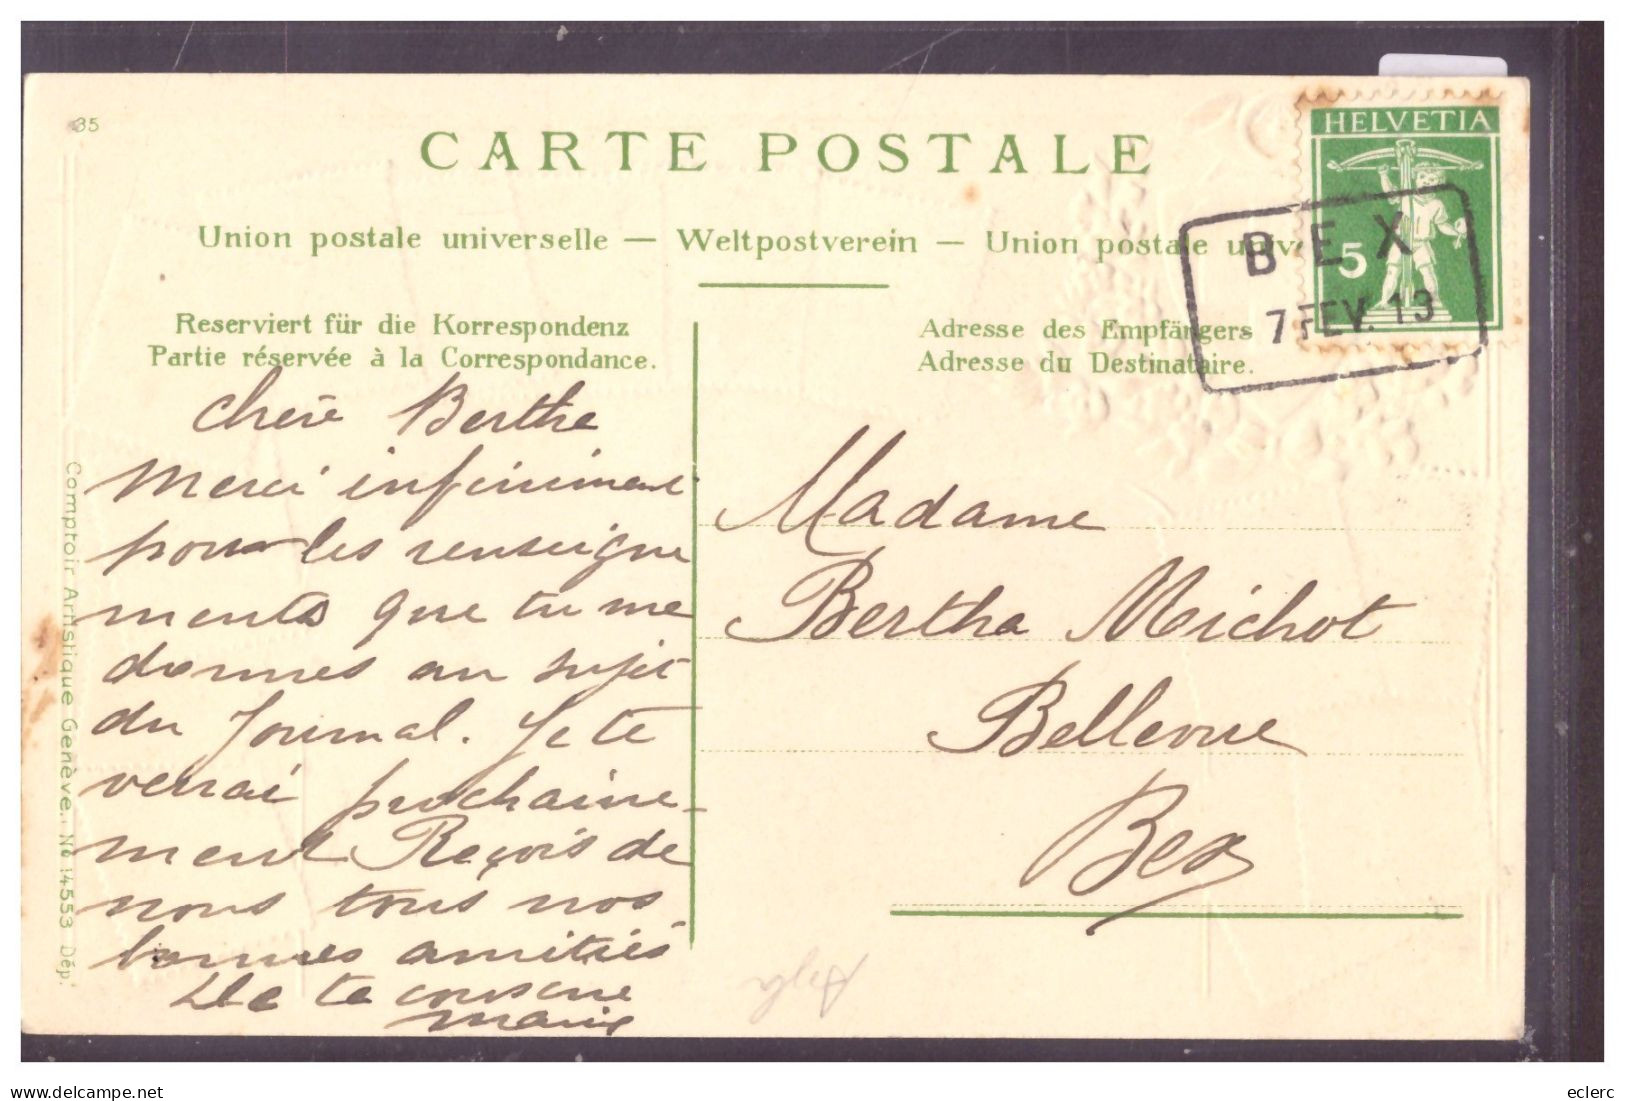 35
CARTE POSTALE
Union postale universelle — Weltpostverein — Union postale unive
HELVETIA
5
BEX
7 FEV. 13
Reserviert für die Korrespondenz
Partie réservée à la Correspondance.
Adresse des Empfängers
Adresse du Destinataire.
Chère Berthe
Merci infiniment
pour les renseigne
ments que tu me
donnes au sujet
du Journal. Je te
verrai prochaine-
ment Reçois de
nous tous nos
bonnes amitiés
De ta cousine
Marie
Madame
Bertha Michot
Bellevue
Bex
Comptoir Artistique Genève. No 14553 Dép.
www.delcampe.net
eclerc